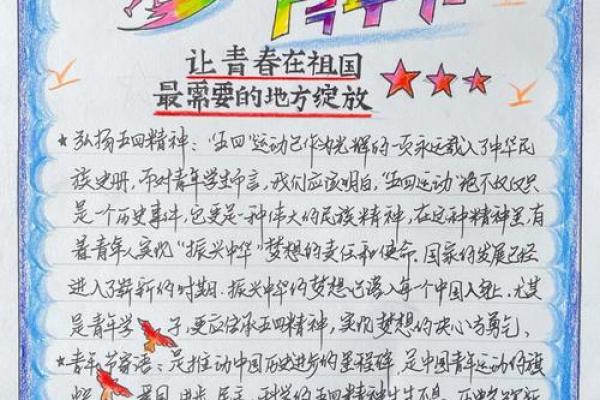 青年节
让青春在祖国
最需要的地方绽放
★弘扬五四精神："五四"运动已作为光辉的一页永远载入了中华民
族史册,而对青年学生而言,我们应该明白,"五四运动"绝不仅仅只
是一个历史事件,它更是一种伟大的民族精神,在这种精神里,有
着青年人实现"振兴中华"梦想的责任和使命.国家的发展已经
进入了崭新的时期.振兴中华的梦想已落入每个中国人身上.尤其
是青年学子,更应传承五四精神,实现梦想的决心与勇气.
★青年节寄语:是推动中国历史进步的里程碑,是中国青年运动的旗
帜 爱国 进步 民主 科学的五四精神生生不息